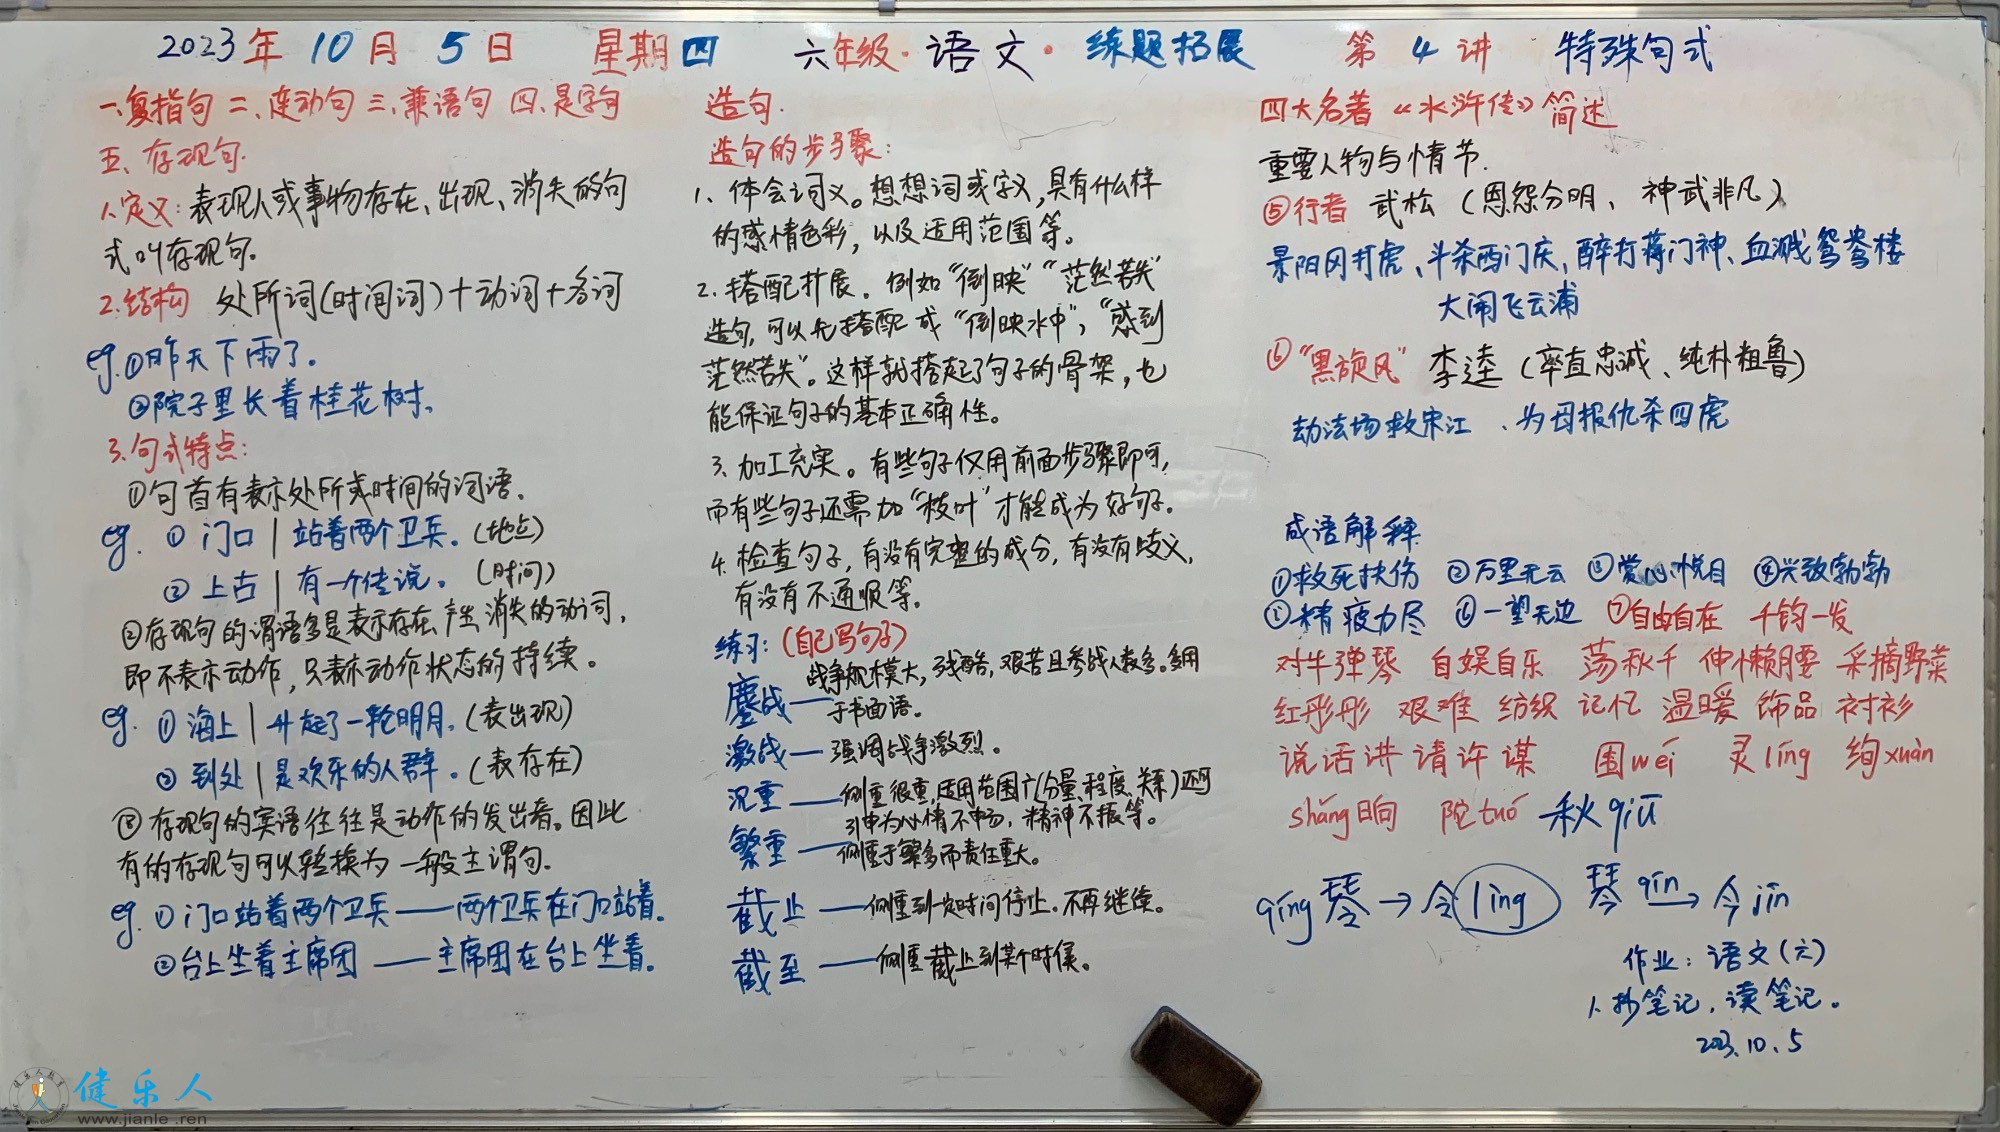 2023年 10月 5日 星期四 六年级·语文·练题拓展 第4讲 特殊句式
一、复指句 二、连动句 三、兼语句 四、是字句
五、存现句.
1.定义:表现人或事物存在、出现、消失的句
式叫存现句。
2.结构 处所词(时间词)+动词+名词
eg.①昨天下雨了。
②院子里长着桂花树.
3.句式特点:
①句首有表示处所或时间的词语.
eg.①门口|站着两个卫兵.(地点)
②上古|有一个传说。(时间)
②存现句的谓语多是表示存在、产生、消失的动词,
即不表示动作,只表示动作状态的持续。
eg.①海上|升起了一轮明月.(表出现)
②到处|是欢乐的人群。(表存在)
③存现句的宾语往往是动作的发出者。因此
有的存现句可以转换为一般主谓句.
eg.①门口站着两个卫兵——两个卫兵在门口站着.
②台上坐着主席团——主席团在台上坐着.
造句.
造句的步骤:
1.体会词义。想想词或字义,具有什么样
的感情色彩,以及适用范围等。
2.搭配扩展。例如“倒映”“茫然若失”
造句,可以先搭配成“倒映水中”,“感到
茫然若失”。这样就搭起了句子的骨架,也
能保证句子的基本正确性。
3.加工充实。有些句子仅用前面步骤即可,
而有些句子还需加“枝叶”才能成为好句子.
4.检查句子,有没有完整的成分,有没有歧义,
有没有不通顺等。
练习:(自己写句子)
鏖战——战争规模大,残酷,艰苦且参战人数多。多用
于书面语。
激战——强调战争激烈。
沉重——侧重很重,适用范围广(分量、程度、关系)还可
引申为心情不畅,精神不振等。
繁重——侧重于繁多而责任重大。
截止——侧重到一定时间停止.不再继续。
截至——侧重截止到某个时候。
四大名著《水浒传》简述
重要人物与情节.
⑤行者 武松(恩怨分明、神武非凡)
景阳冈打虎、斗杀西门庆、醉打蒋门神、血溅鸳鸯楼
大闹飞云浦
⑥“黑旋风”李逵(率直忠诚、纯朴粗鲁)
劫法场救宋江、为母报仇杀四虎
成语解释
①救死扶伤 ②万里无云 ③赏心悦目 ④兴致勃勃
⑤精疲力尽 ⑥一望无边 ⑦自由自在 千钧一发
对牛弹琴 自娱自乐 荡秋千 伸懒腰 采摘野菜
红彤彤 艰难 纺织 记忆 温暖 饰品 衬衫
说话讲请许谋 围wéi 灵líng 绚xuàn
shǎng晌 陀tuó 秋qiū
qíng琴→令líng 琴qín→今jīn
作业:语文(六)
1.抄笔记,读笔记。
2023.10.5
健乐人
www.jianle.ren